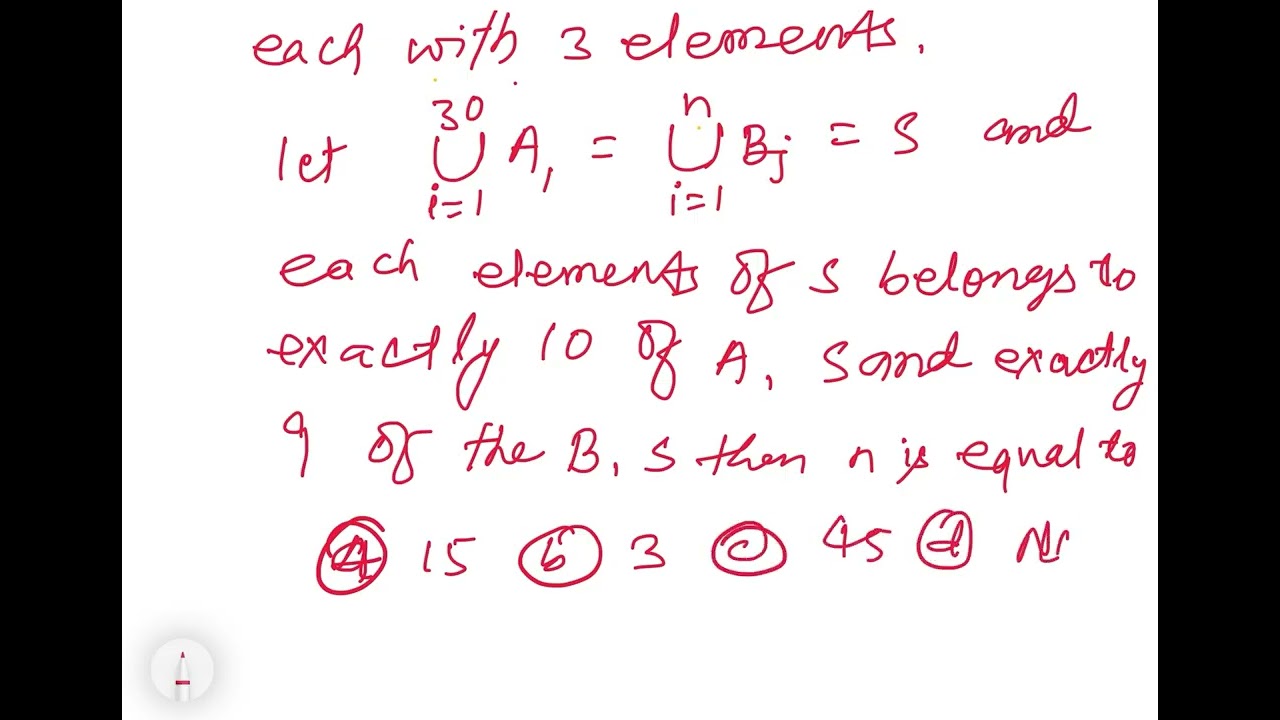 each with 3 elements.
let 30 ∪ i=1 A, = n ∪ i=1 Bj = S and
each elements of S belongs to
exactly 10 of A, S and exactly
9 of the B, S then n is equal to
a 15 b 3 c 45 d